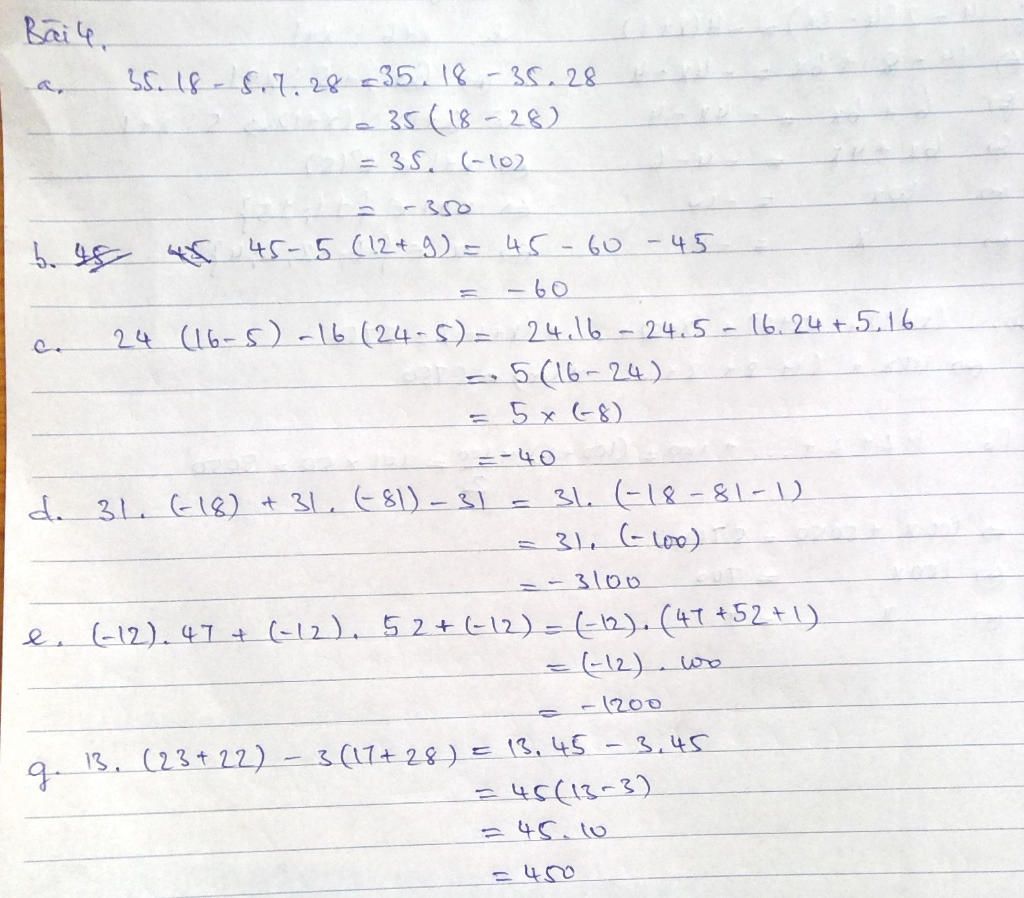 Bài 4.
a. 35.18 - 5.7.28 = 35.18 - 35.28
= 35(18 - 28)
= 35. (-10)
= -350
b. 45 - 5 (12 + 9) = 45 - 60 - 45
= -60
c. 24 (16-5) - 16 (24-5) = 24.16 - 24.5 - 16.24 + 5.16
= 5(16 - 24)
= 5 x (-8)
= -40
d. 31. (-18) + 31. (-81) - 31 = 31. (-18 - 81 - 1)
= 31. (-100)
= -3100
e. (-12). 47 + (-12). 52 + (-12) = (-12). (47 + 52 + 1)
= (-12). 100
= -1200
g. 13. (23 + 22) - 3(17 + 28) = 13.45 - 3.45
= 45(13 - 3)
= 45.10
= 450